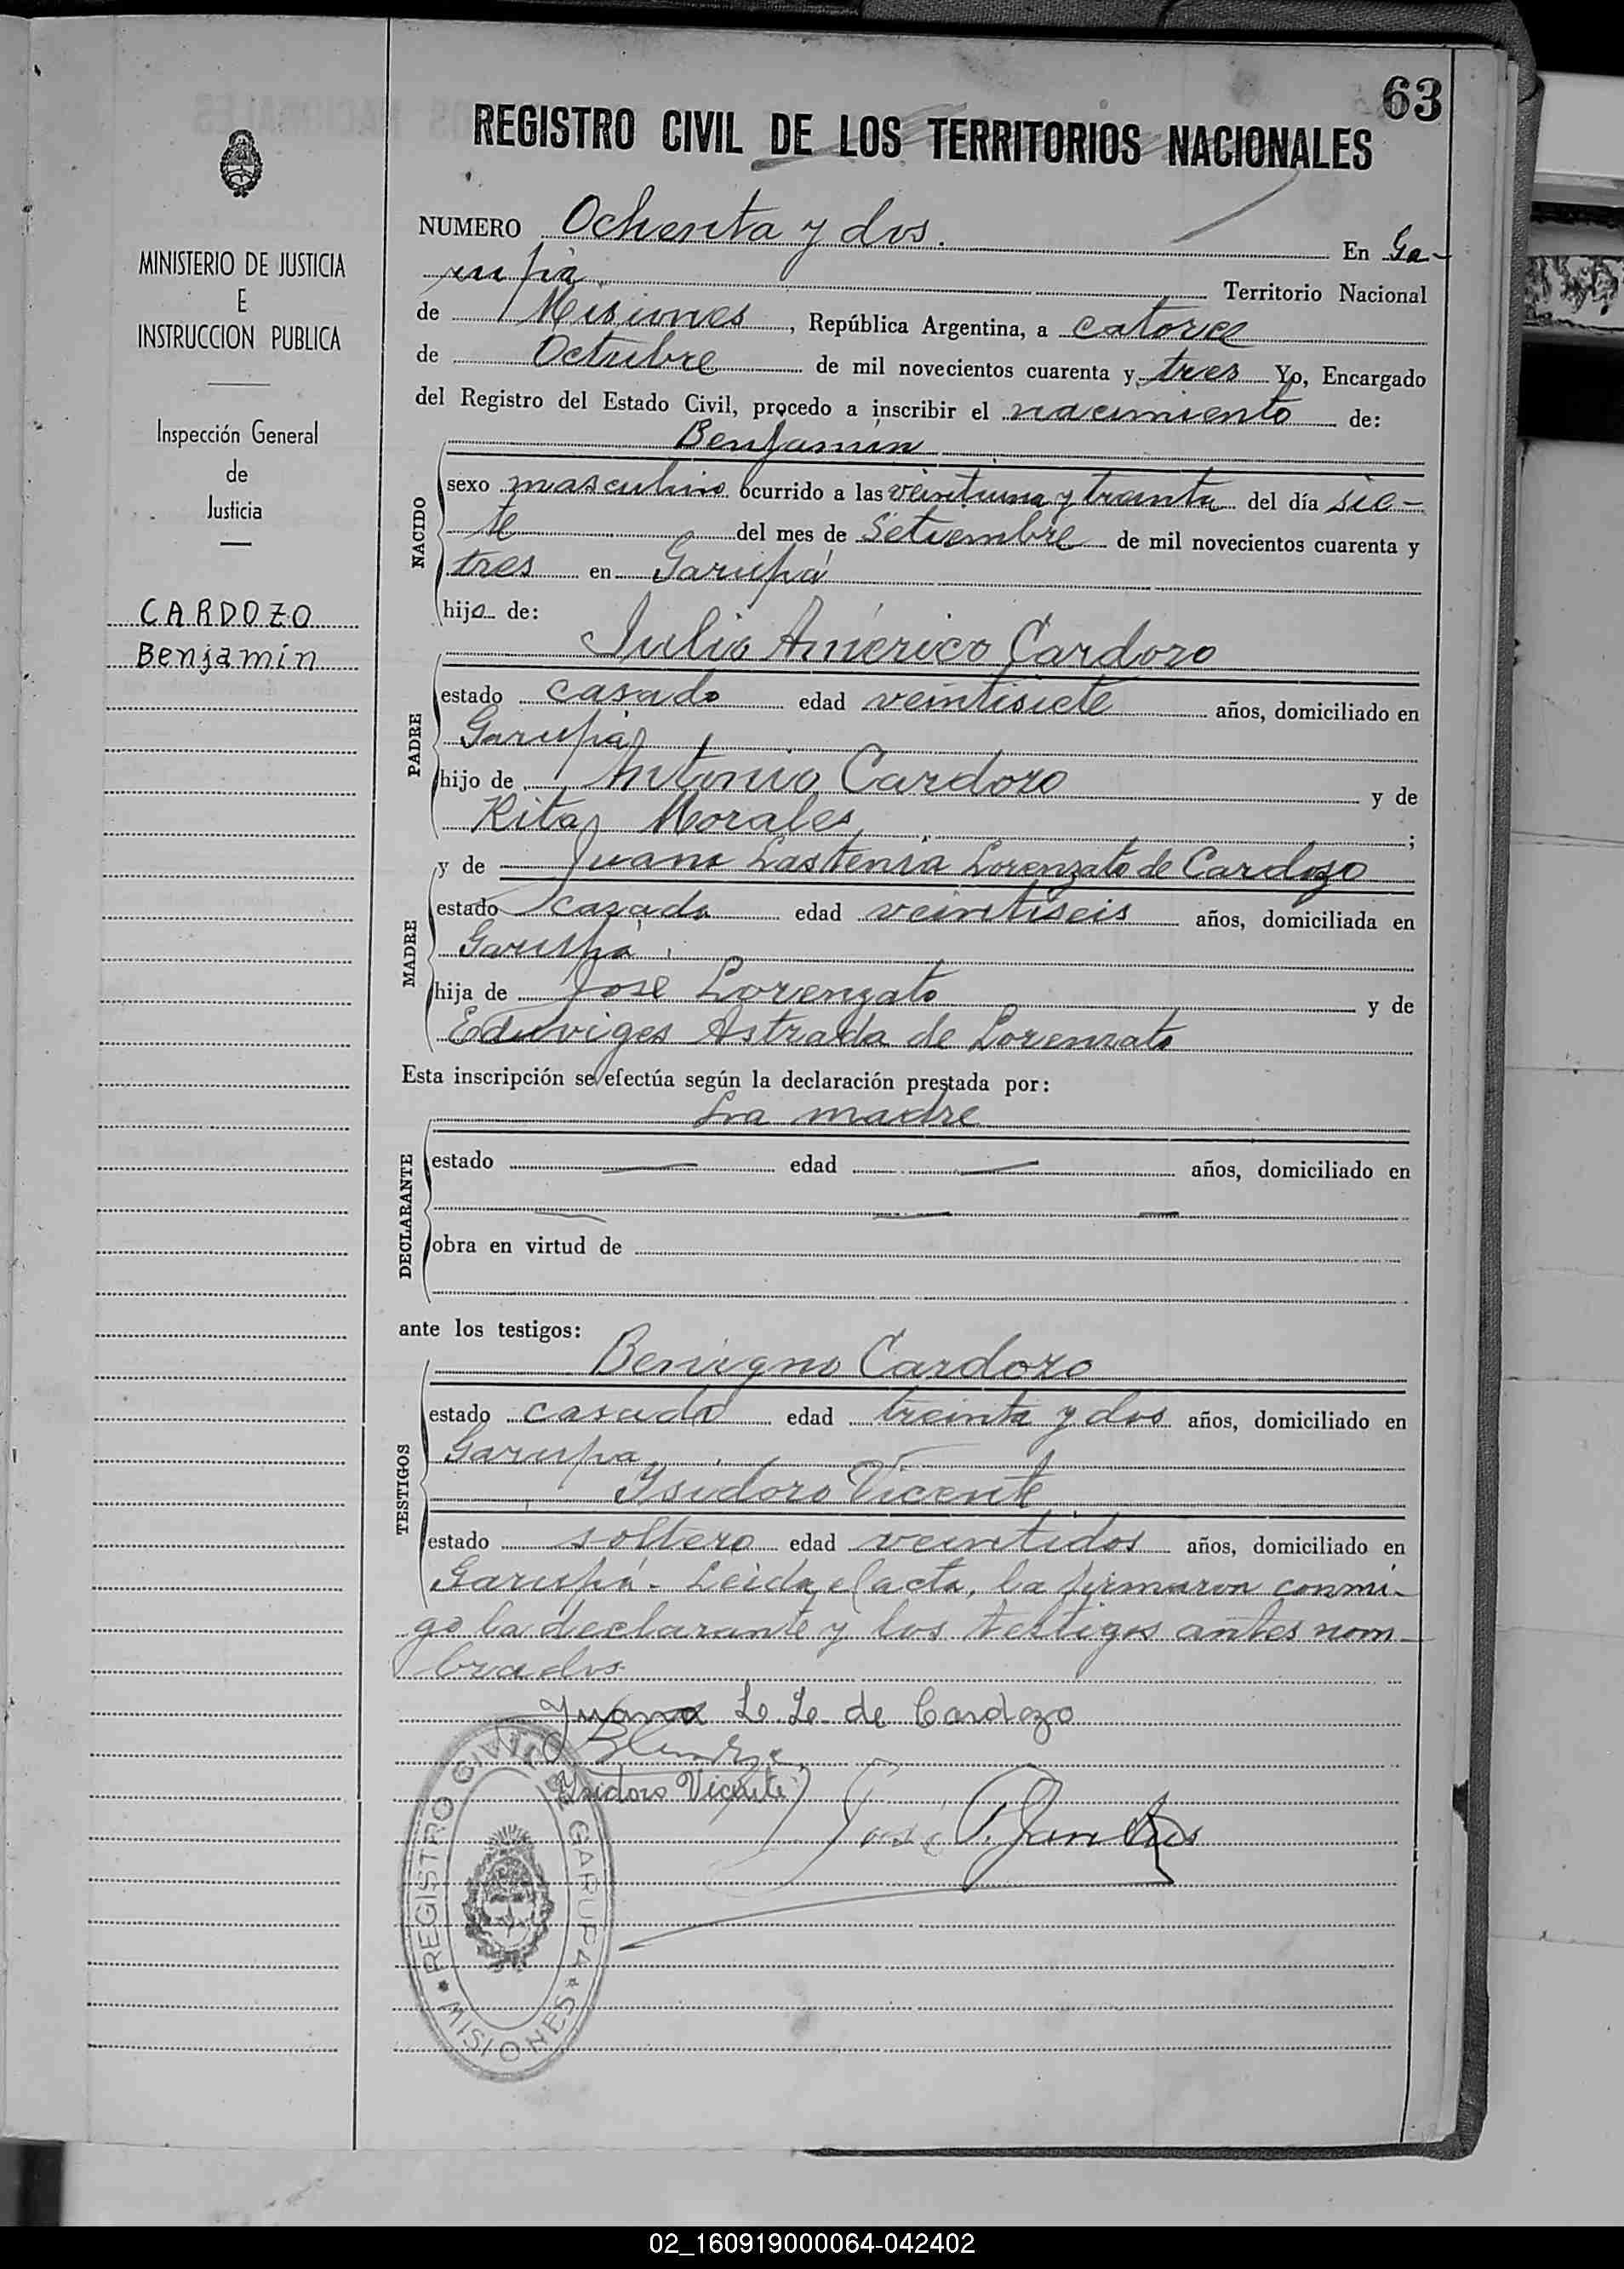 63
REGISTRO CIVIL DE LOS TERRITORIOS NACIONALES
MINISTERIO DE JUSTICIA
E
INSTRUCCION PUBLICA
Inspección General
de
Justicia
CARDOZO
Benjamín
NUMERO Ochenta y dos. En Ga-
rupá Territorio Nacional
de Misiones, República Argentina, a catorce
de Octubre de mil novecientos cuarenta y tres Yo, Encargado
del Registro del Estado Civil, procedo a inscribir el nacimiento de:
Benjamín
NACIDO
sexo masculino ocurrido a las veintiuna y treinta del día sie-
te del mes de Setiembre de mil novecientos cuarenta y
tres en Garupá
hijo de:
Julio Américo Cardozo
PADRE
estado casado edad veintisiete años, domiciliado en
Garupá
hijo de Antonio Cardozo y de
Rita Morales ;
y de Juana Lastenia Lorenzato de Cardozo
MADRE
estado casada edad veintiseis años, domiciliada en
Garupá
hija de José Lorenzato y de
Eduviges Astrada de Lorenzato
Esta inscripción se efectúa según la declaración prestada por:
La madre
DECLARANTE
estado — edad — años, domiciliado en
— — —
obra en virtud de
ante los testigos:
Benigno Cardozo
TESTIGOS
estado casado edad treinta y dos años, domiciliado en
Garupá
Isidoro Vicente
estado soltero edad veintidos años, domiciliado en
Garupá - Leída el acta, la firmaron conmi-
go la declarante y los testigos antes nom-
brados
Juana L. L. de Cardozo
Isidoro Vicente
José
REGISTRO CIVIL GARUPA
MISIONES
02_160919000064-042402